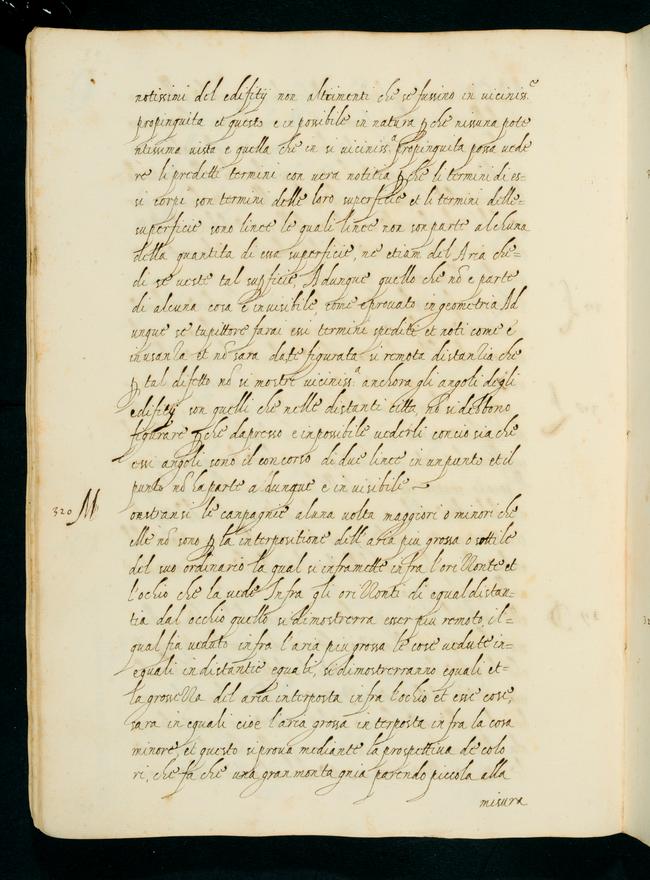 notissimi del edifitij non altrimenti che se fussino in viciniss.e
propinquita et questo e inpossibile in natura p che nissuna pote
ntissima vista e quella che in si viciniss.a propinquita possa vede
re li predetti termini con vera notitia p che li termini di es=
si corpi son termini delle loro superfitie et li termini delle=
superfitie sono linee le quali linee non son parte alchuna
della quantita di essa superfitie, ne etiam del Aria che=
di se veste tal supfitie, Adunque quello che nõ e parte
di alcuna cosa e invisibile, come e provato in geometria Ad
unque se tu pittore farai essi termini spediti et noti come e
in usanza et nõ sara da te figurata si remota distanzia che
p tal difetto nõ si mostri viciniss.a anchora gli angoli degli
edifitij son quelli che nelle distanti citta, nõ si debbono
figurare p che da presso e inpossibile vederli concio sia che
essi angoli sono il concorso di due linee in un punto et il
punto nõ ha parte adunque e invisibile
320 Monstransi le canpagnie alcuna volta maggiori o minori che
elle nõ sono p la interpositione dell'aria piu grossa o sottile
del suo ordinario la qual si inframette infra l'orizzonte et
l'ochio che la vede Infra gli orizzonti di equal distan=
tia dal occhio quello si dimostrerra esser piu remoto, il=
qual fia veduto infra l'aria piu grossa le cose vedute in=
equali in distantie equali, si dimostrerranno equali et=
la grossezza del aria interposta infra l'ochio et esse cose,
sara in equali cioe l'aria grossa interposta infra la cosa
minore, et questo si prova mediante la prospettiva de colo
ri, che fa che una gran montagnia parendo piccola alla
misura